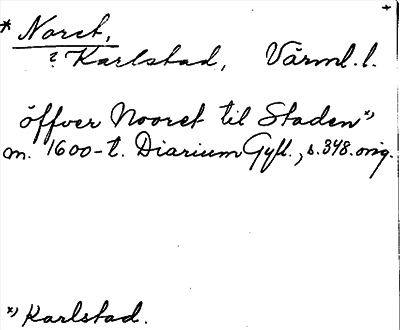 * Noret,
? Karlstad, Värml. l.
öffver Nooret til Staden *)
m. 1600-t. Diarium Gyll., s. 348. orig.
*) Karlstad.